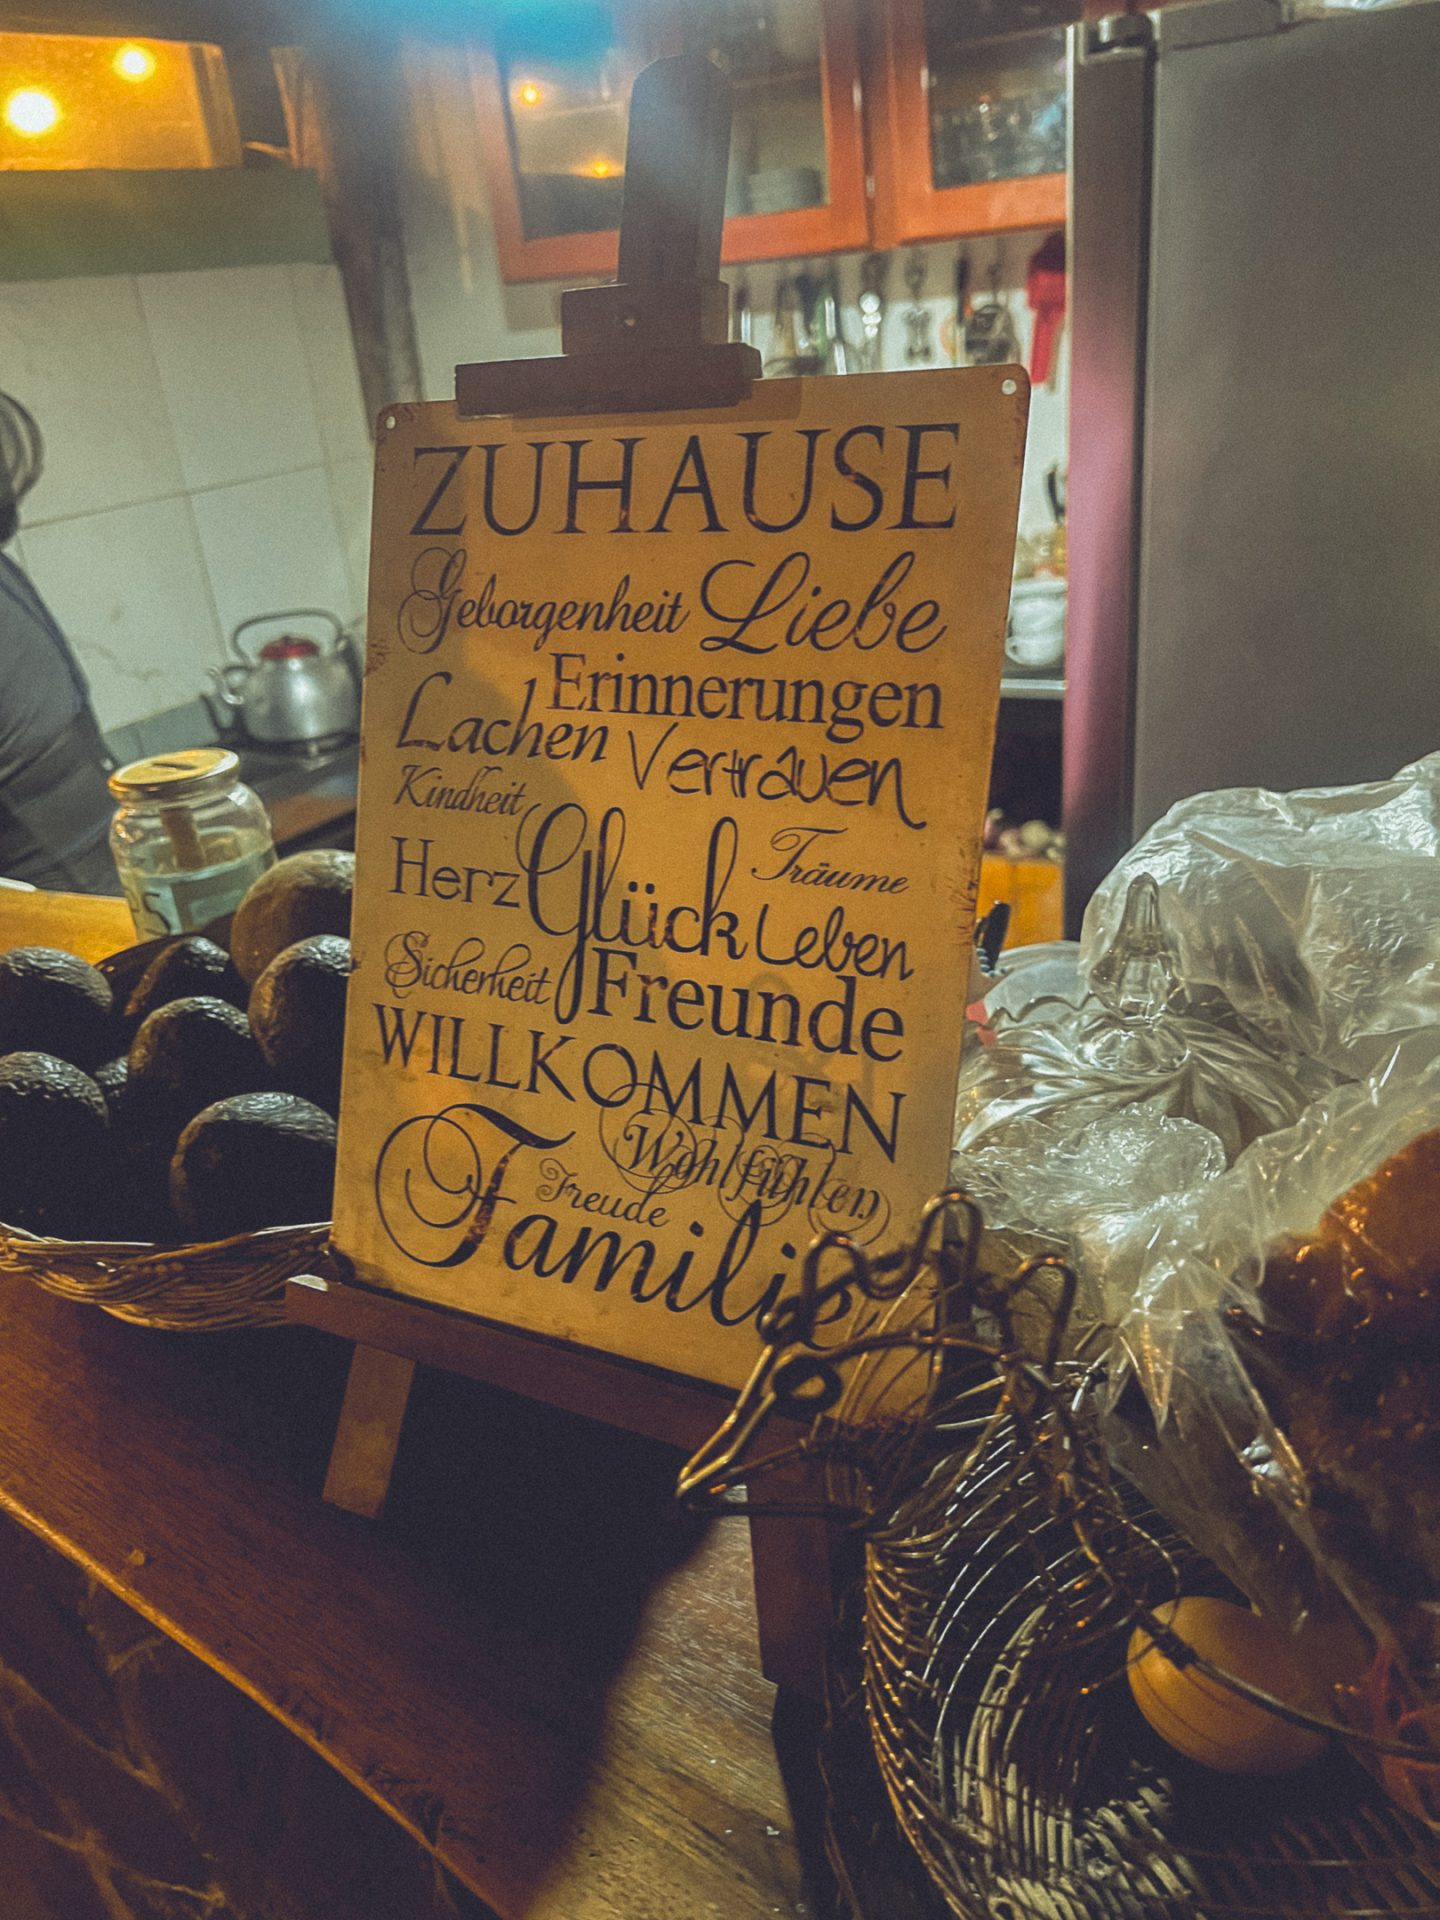 ZUHAUSE
Geborgenheit Liebe
Erinnerungen
Lachen Vertrauen
Kindheit
Träume
Herz Glück Leben
Sicherheit Freunde
WILLKOMMEN
Wohlfühlen
Freude
Familie